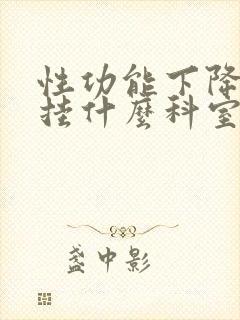 性功能下降
挂什麽科室
盏中影